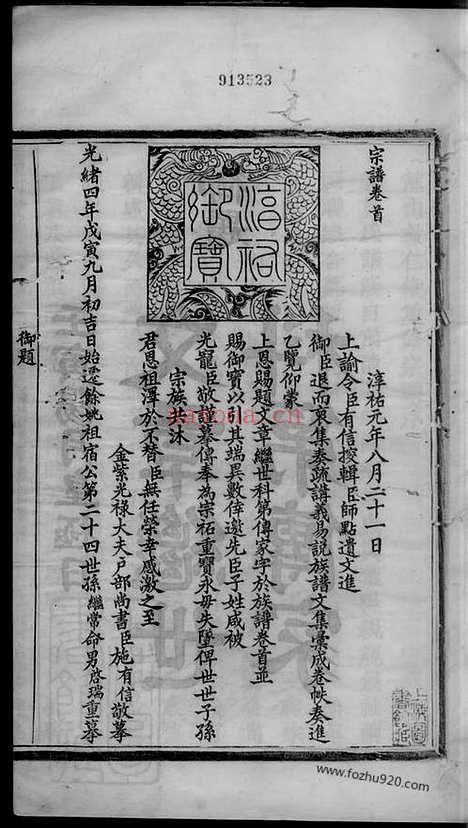 913523
宗譜卷首
淳祐御寶
淳祐元年八月二十一日
上諭令臣有信搜輯臣師點遺文進
御臣退而裒集奏疏講義易說族譜文集彙成卷帙奏進
乙覽仰蒙
上恩賜題文章繼世科第傳家字於族譜卷首並
賜御寶以冠其端異數倖邀先臣子姓咸被
光寵臣敬謹摹傳奉為宗祏重寶永毋失墜俾世世子孫
宗族光沐
君恩祖澤於不替臣無任榮幸感激之至
金紫光祿大夫戶部尚書臣施有信敬摹
光緒四年戊寅九月初吉日始遷餘姚祖宿公第二十四世孫繼常命男啓瑞重摹
御題
nayona.cn
www.fozhu920.com